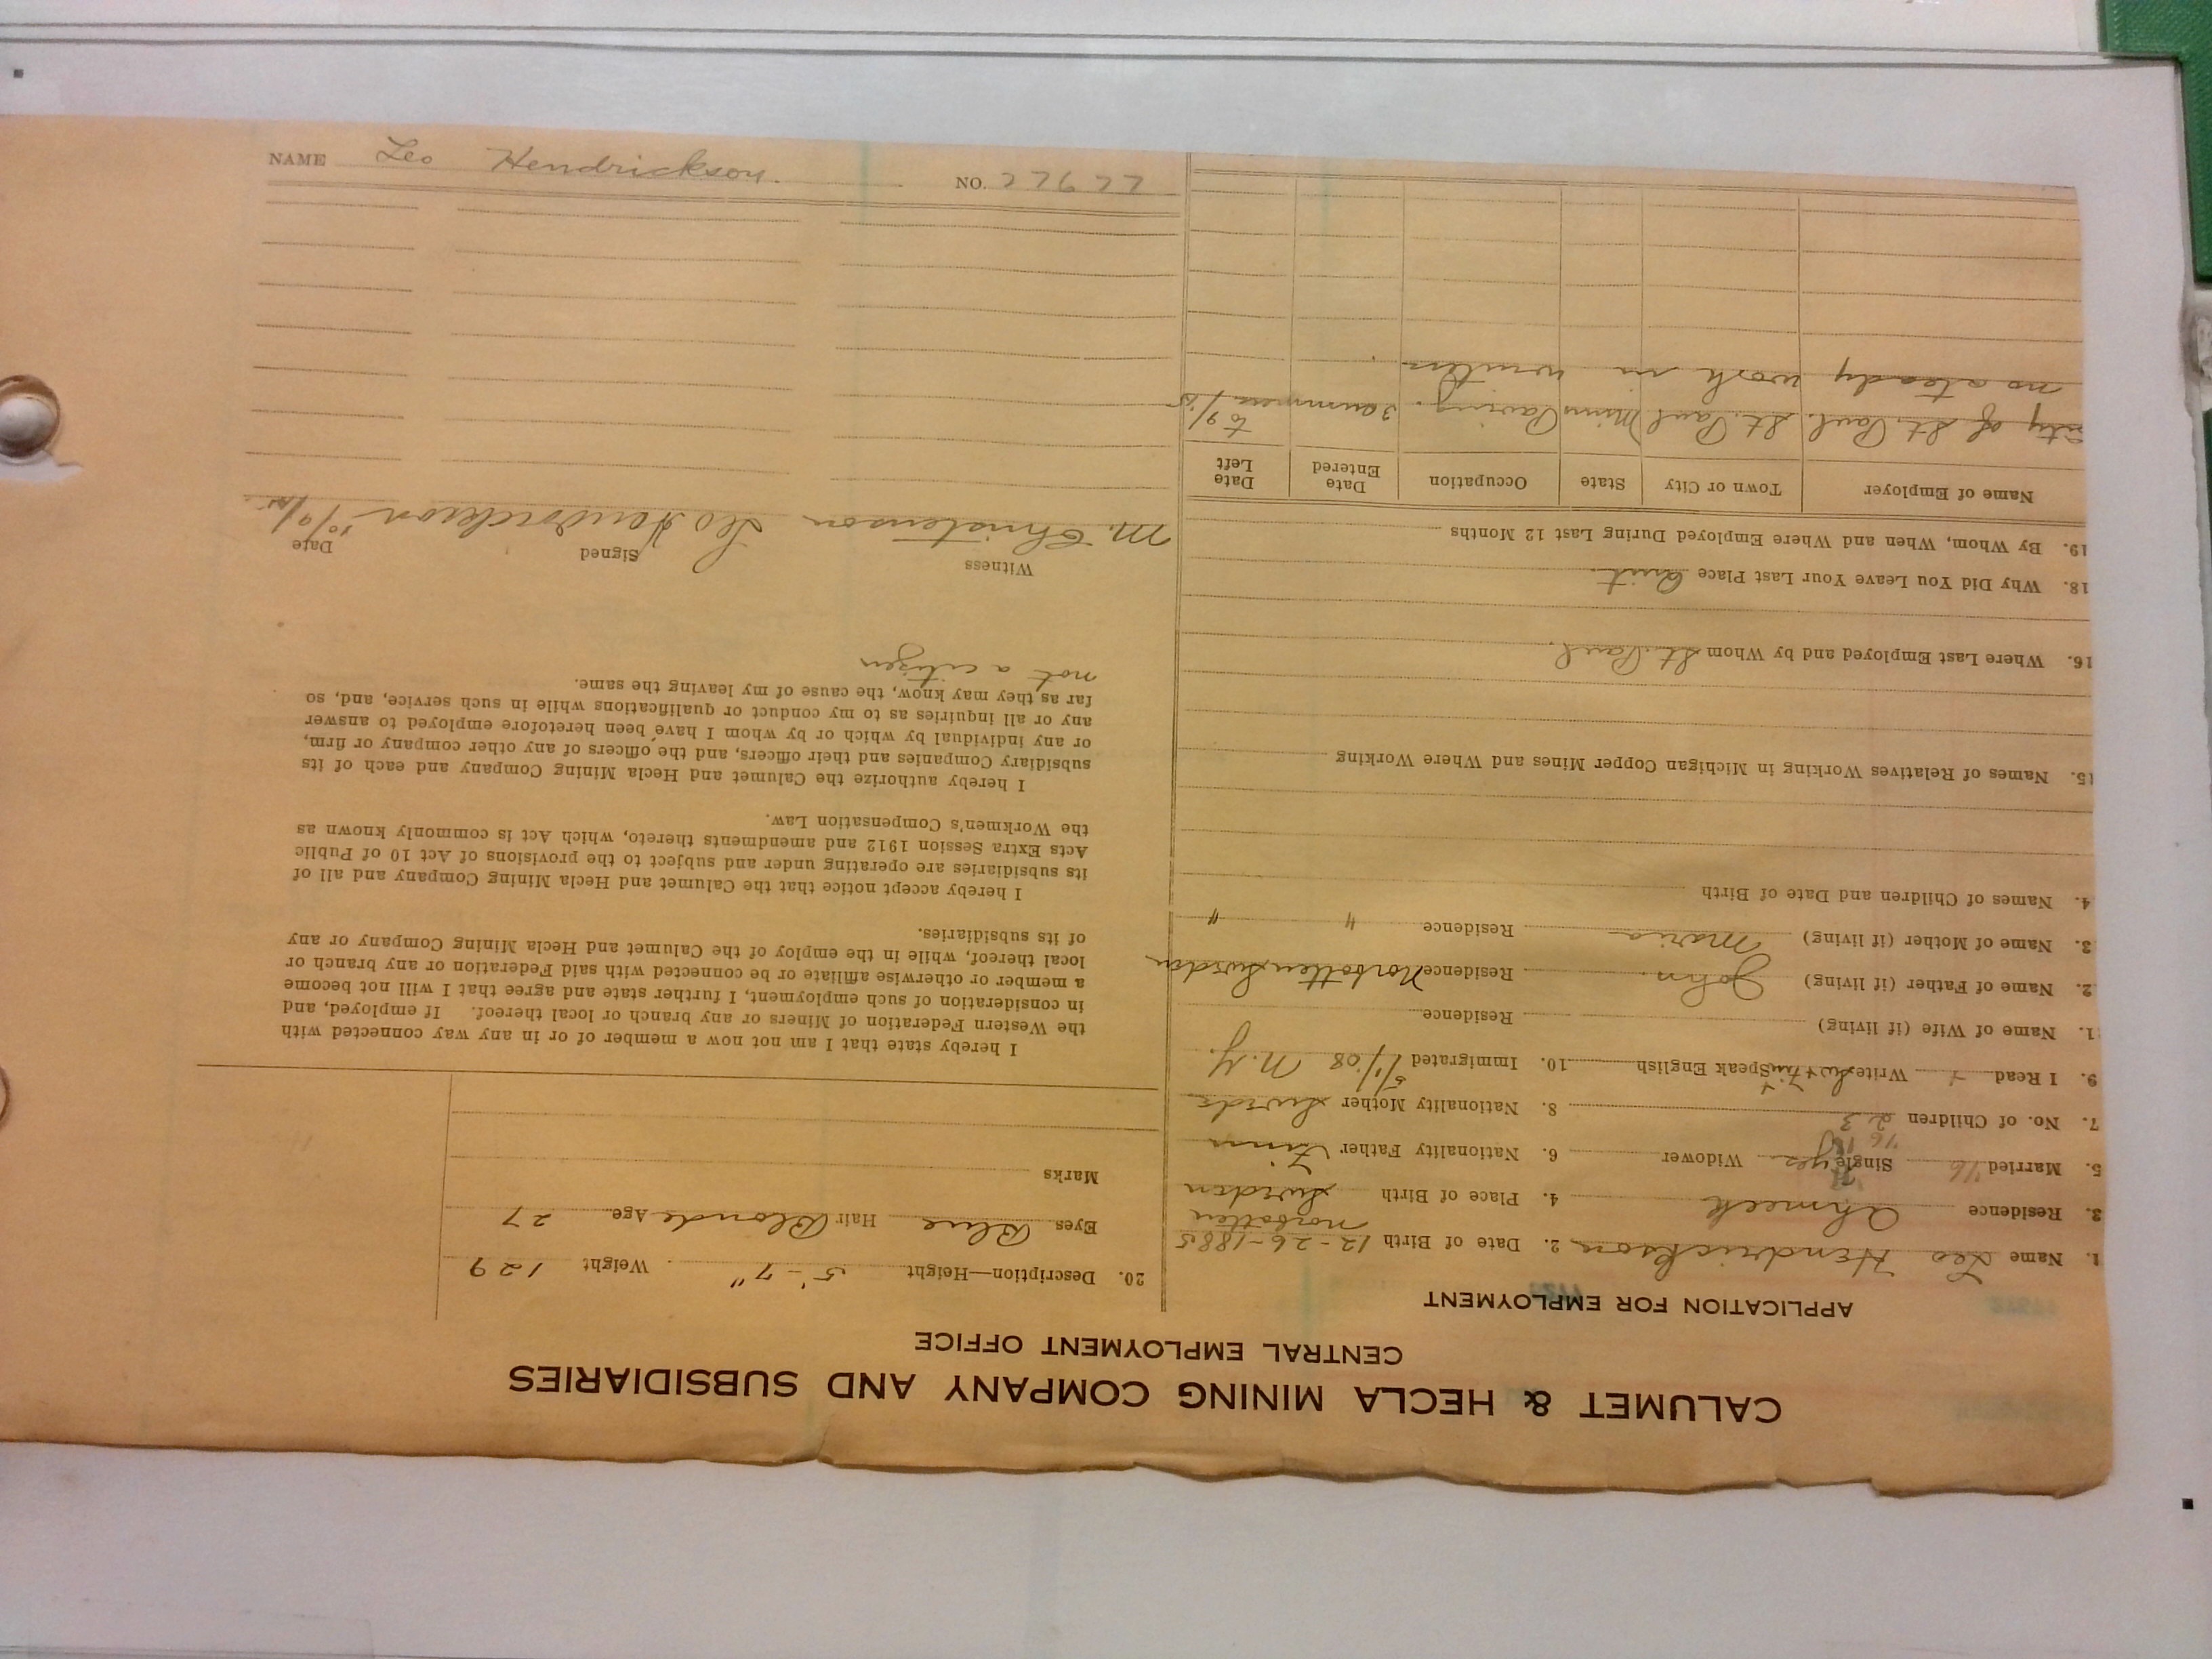 CALUMET & HECLA MINING COMPANY AND SUBSIDIARIES
CENTRAL EMPLOYMENT OFFICE
APPLICATION FOR EMPLOYMENT
1. Name Leo Hendrickson 2. Date of Birth 12-26-1885
Norbotten
3. Residence Ahmeek 4. Place of Birth Sweden
5. Married Single yes Widower 6. Nationality Father Finn
7. No. of Children 2 3 8. Nationality Mother Swede
9. I Read + Write Speak English 10. Immigrated 5/1/08 N.Y.
11. Name of Wife (if living) Residence
2. Name of Father (if living) John Residence Norbotten Sweden
3. Name of Mother (if living) Maria Residence " "
4. Names of Children and Date of Birth
15. Names of Relatives Working in Michigan Copper Mines and Where Working
16. Where Last Employed and by Whom St. Paul.
18. Why Did You Leave Your Last Place Quit.
19. By Whom, When and Where Employed During Last 12 Months
Name of Employer Town or City State Occupation Date Entered Date Left
City of St. Paul. St. Paul Minn Paving. 3 summers to 9/15
no steady work in winter.
20. Description—Height 5'-7" Weight 129
Eyes Blue Hair Blonde Age 27
Marks
I hereby state that I am not now a member of or in any way connected with
the Western Federation of Miners or any branch or local thereof. If employed, and
in consideration of such employment, I further state and agree that I will not become
a member or otherwise affiliate or be connected with said Federation or any branch or
local thereof, while in the employ of the Calumet and Hecla Mining Company or any
of its subsidiaries.
I hereby accept notice that the Calumet and Hecla Mining Company and all of
its subsidiaries are operating under and subject to the provisions of Act 10 of Public
Acts Extra Session 1912 and amendments thereto, which Act is commonly known as
the Workmen's Compensation Law.
I hereby authorize the Calumet and Hecla Mining Company and each of its
subsidiary Companies and their officers, and the officers of any other company or firm,
or any individual by which or by whom I have been heretofore employed to answer
any or all inquiries as to my conduct or qualifications while in such service, and, so
far as they may know, the cause of my leaving the same.
not a citizen
Witness Signed Date
M. Christenson Leo Hendrickson 10/9/15
NAME Leo Hendrickson. NO. 22622